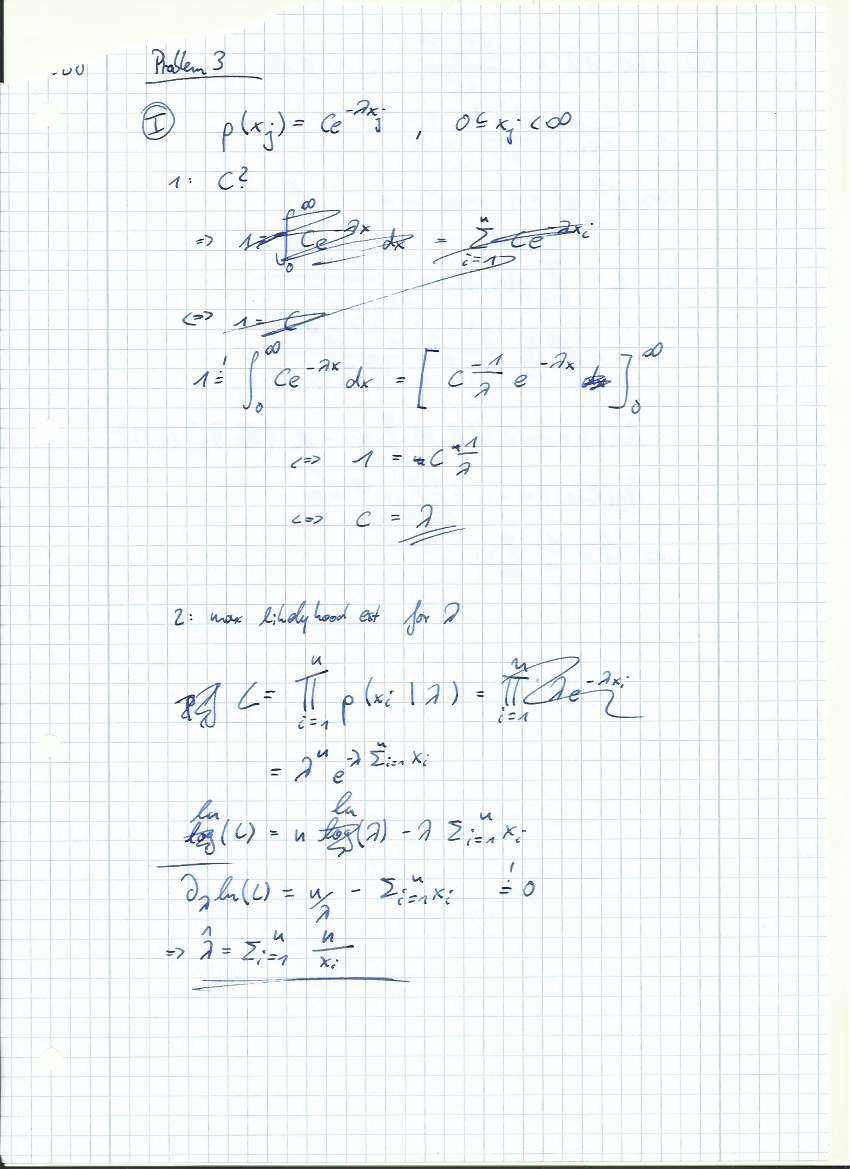 Problem 3
I p(x_j) = Ce^{-λx_j} , 0 ≤ x_j < ∞
1: C?
=> 1 = ∫_0^∞ Ce^{-λx} dx = Σ_{i=1}^n Ce^{-λx_i}
<=> 1 = C
1 =! ∫_0^∞ Ce^{-λx} dx = [ C \frac{-1}{λ} e^{-λx} dx ]_0^∞
<=> 1 = C \frac{1}{λ}
<=> C = λ
2: max likelyhood est for λ
L = ∏_{i=1}^n p(x_i | λ) = ∏_{i=1}^n λe^{-λx_i}
= λ^n e^{-λ Σ_{i=1}^n x_i}
ln(L) = n ln(λ) - λ Σ_{i=1}^n x_i
∂_λ ln(L) = n/λ - Σ_{i=1}^n x_i =! 0
=> \hat{λ} = Σ_{i=1}^n \frac{n}{x_i}